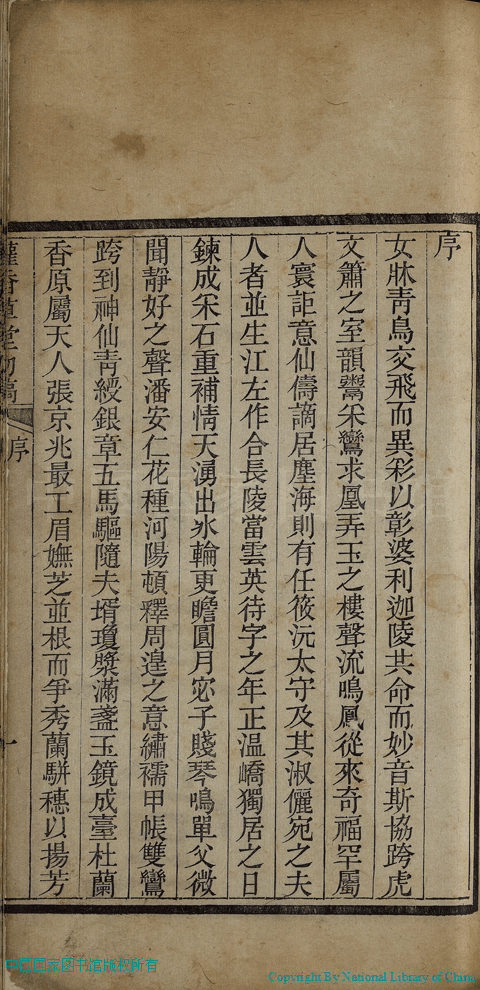 序
女牀靑鳥交飛而異彩以彰婆利迦陵共命而妙音斯協跨虎
文簫之室韻鸞釆鸞求凰弄玉之樓聲流鳴鳳從來奇福罕屬
人寰詎意仙儔謫居塵海則有任筱沅太守及其淑儷宛之夫
人者並生江左作合長陵當雲英待字之年正溫嶠獨居之日
鍊成釆石重補情天湧出冰輪更瞻圓月宓子賤琴鳴單父微
聞靜好之聲潘安仁花種河陽頓釋周遑之意繡襦甲帳雙鸞
跨到神仙靑綬銀章五馬驅隨夫壻瓊漿滿盞玉鏡成臺杜蘭
香原屬天人張京兆最工眉嫵芝並根而爭秀蘭駢穗以揚芳
香草堂初稿
序
一
中国国家图书馆版权所有
Copyright By National Library of China